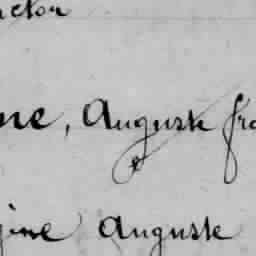 ne, Auguste fra
gine Auguste